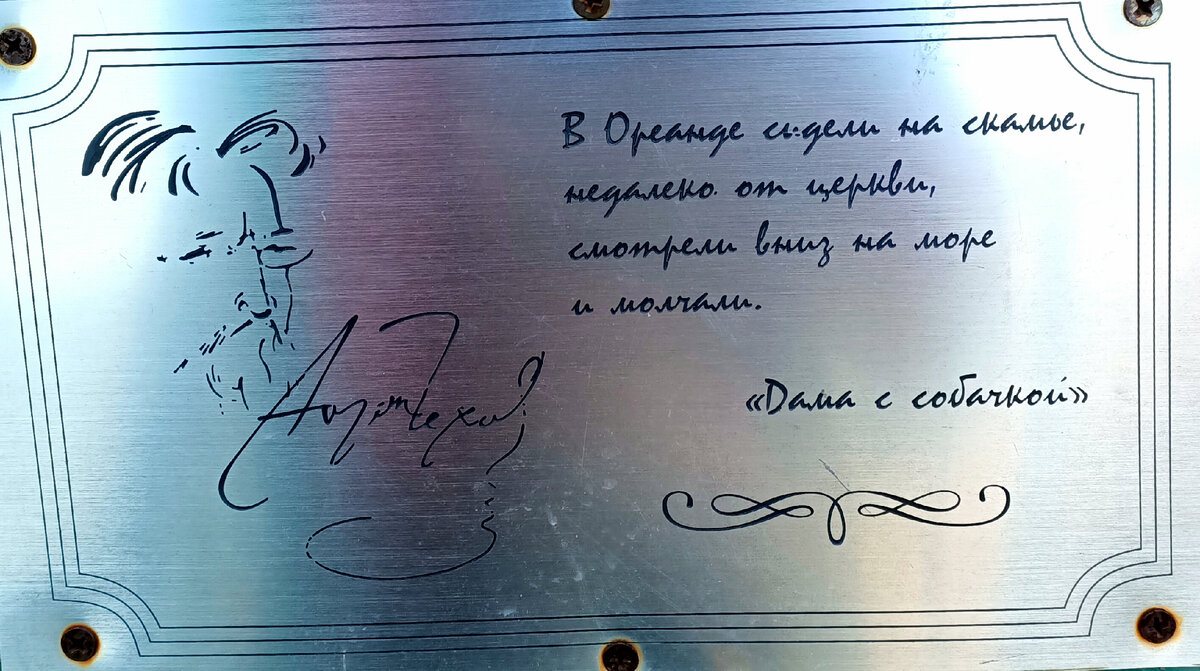 В Ореанде сидели на скамье,
недалеко от церкви,
смотрели вниз на море
и молчали.
«Дама с собачкой»
Антон Чехов